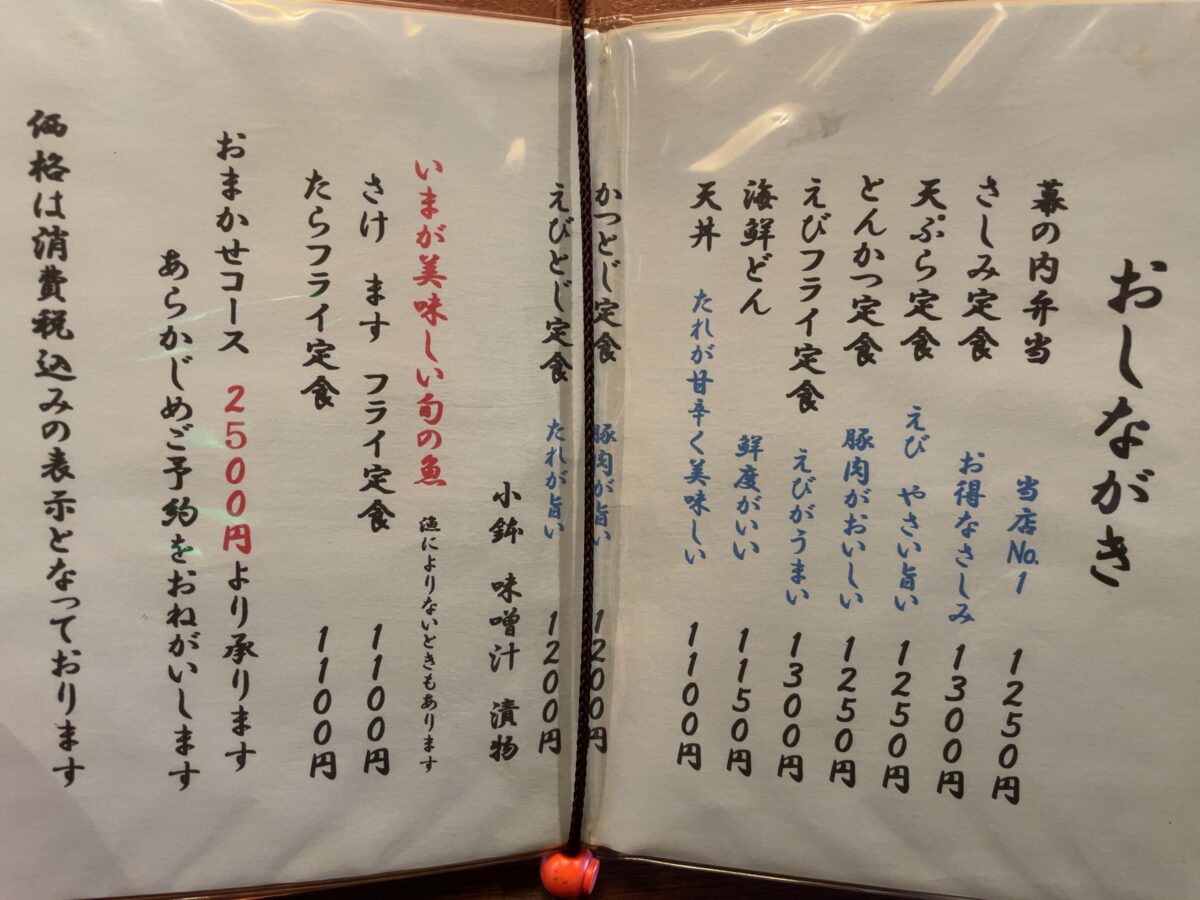 おしながき
幕の内弁当 当店No.1 1250円
さしみ定食 お得なさしみ 1300円
天ぷら定食 えび やさい旨い 1250円
とんかつ定食 豚肉がおいしい 1250円
えびフライ定食 えびがうまい 1300円
海鮮どん 鮮度がいい 1150円
天丼 たれが甘辛く美味しい 1100円
かつとじ定食 豚肉が旨い 1200円
えびとじ定食 たれが旨い 1200円
小鉢 味噌汁 漬物
いまが美味しい旬の魚 漁によりないときもあります
さけ ます フライ定食 1100円
たらフライ定食 1100円
おまかせコース 2500円より承ります
あらかじめご予約をおねがいします
価格は消費税込みの表示となっております